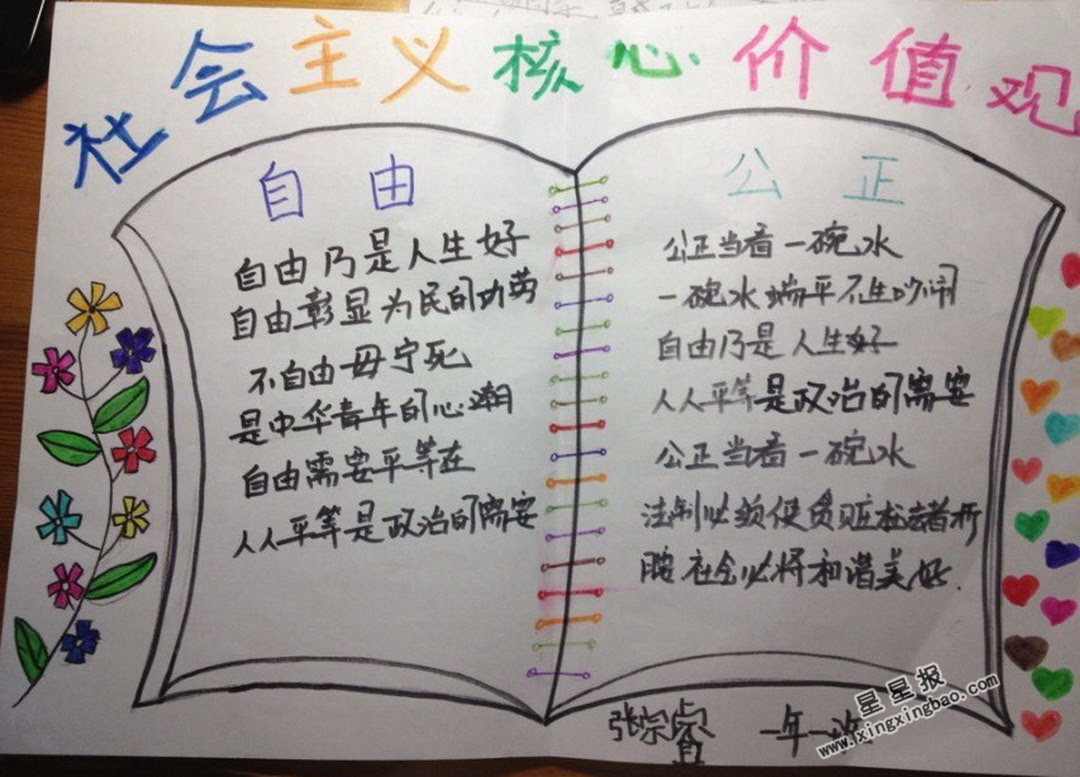 社会主义核心价值观
自由
自由乃是人生好
自由彰显为民的功劳
不自由毋宁死
是中华青年的心潮
自由需要平等在
人人平等是政治的需要
公正
公正当看一碗水
一碗水端平不生吵闹
自由乃是人生好
人人平等是政治的需要
公正当看一碗水
法制必须使贪赃枉法者折
腰社会必将和谐美好.
张宗睿 一年一班
星星报
www.xingxingbao.com